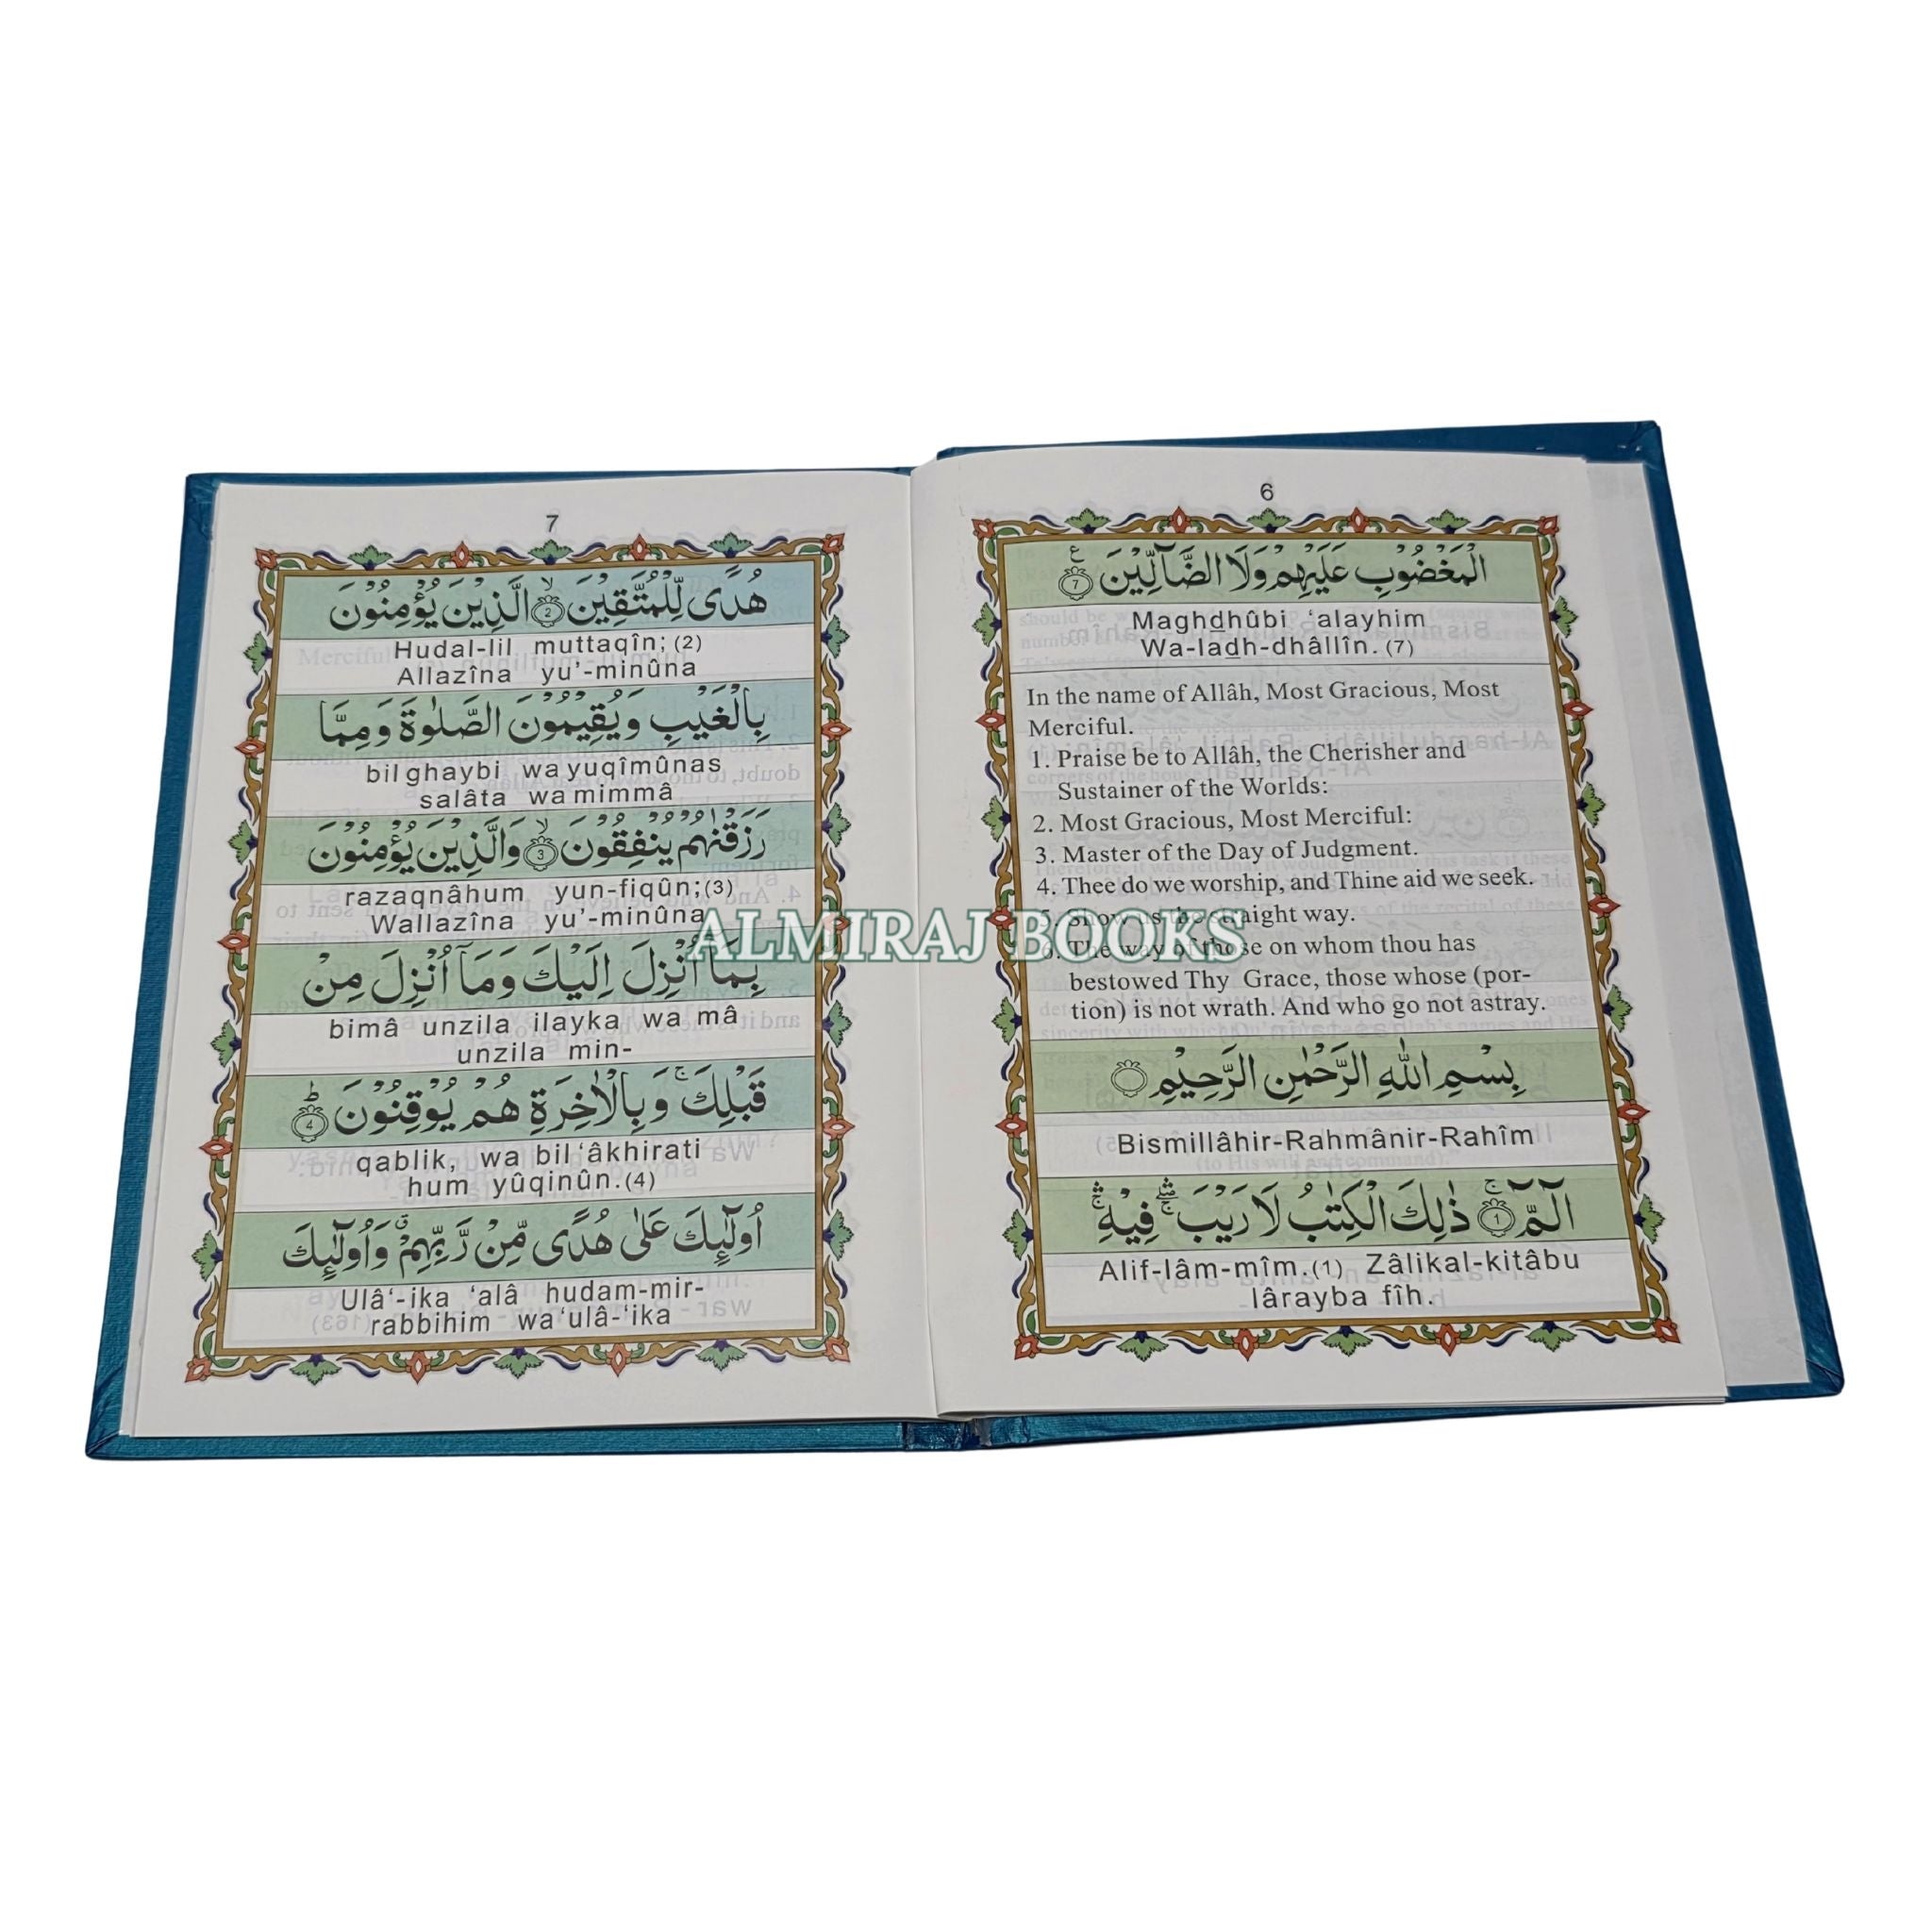 6
الْمَغْضُوْبِ عَلَيْهِمْ وَلَا الضَّآلِّيْنَ 7 ع
Maghdhûbi ‘alayhim
Wa-lad̲h-dhâllîn. (7)
In the name of Allâh, Most Gracious, Most
Merciful.
1. Praise be to Allâh, the Cherisher and
Sustainer of the Worlds:
2. Most Gracious, Most Merciful:
3. Master of the Day of Judgment.
4. Thee do we worship, and Thine aid we seek.
5. Show us the straight way.
6. The way of those on whom thou has
bestowed Thy Grace, those whose (por-
tion) is not wrath. And who go not astray.
بِسْمِ اللهِ الرَّحْمٰنِ الرَّحِيْمِ
Bismillâhir-Rahmânir-Rahîm
الٓمّٓ ۚ 1 ذٰلِكَ الْكِتٰبُ لَا رَيْبَ ۛۖ فِيْهِ ۛۚ
Alif-lâm-mîm.(1) Zâlikal-kitâbu
lârayba fîh.
7
هُدًى لِّلْمُتَّقِيْنَ ۙ 2 الَّذِيْنَ يُؤْمِنُوْنَ
Hudal-lil muttaqîn; (2)
Allazîna yu’-minûna
بِالْغَيْبِ وَيُقِيْمُوْنَ الصَّلٰوةَ وَمِمَّا
bil ghaybi wa yuqîmûnas
salâta wa mimmâ
رَزَقْنٰهُمْ يُنْفِقُوْنَ ۙ 3 وَالَّذِيْنَ يُؤْمِنُوْنَ
razaqnâhum yun-fiqûn;(3)
Wallazîna yu’-minûna
بِمَآ اُنْزِلَ اِلَيْكَ وَمَآ اُنْزِلَ مِنْ
bimâ unzila ilayka wa mâ
unzila min-
قَبْلِكَ ۚ وَبِالْاٰخِرَةِ هُمْ يُوْقِنُوْنَ ؕ 4
qablik, wa bil ‘âkhirati
hum yûqinûn.(4)
اُولٰٓئِكَ عَلٰى هُدًى مِّنْ رَّبِّهِمْ ۗ وَاُولٰٓئِكَ
Ulâ‘-ika ‘alâ hudam-mir-
rabbihim wa‘ulâ-‘ika
ALMIRAJ BOOKS